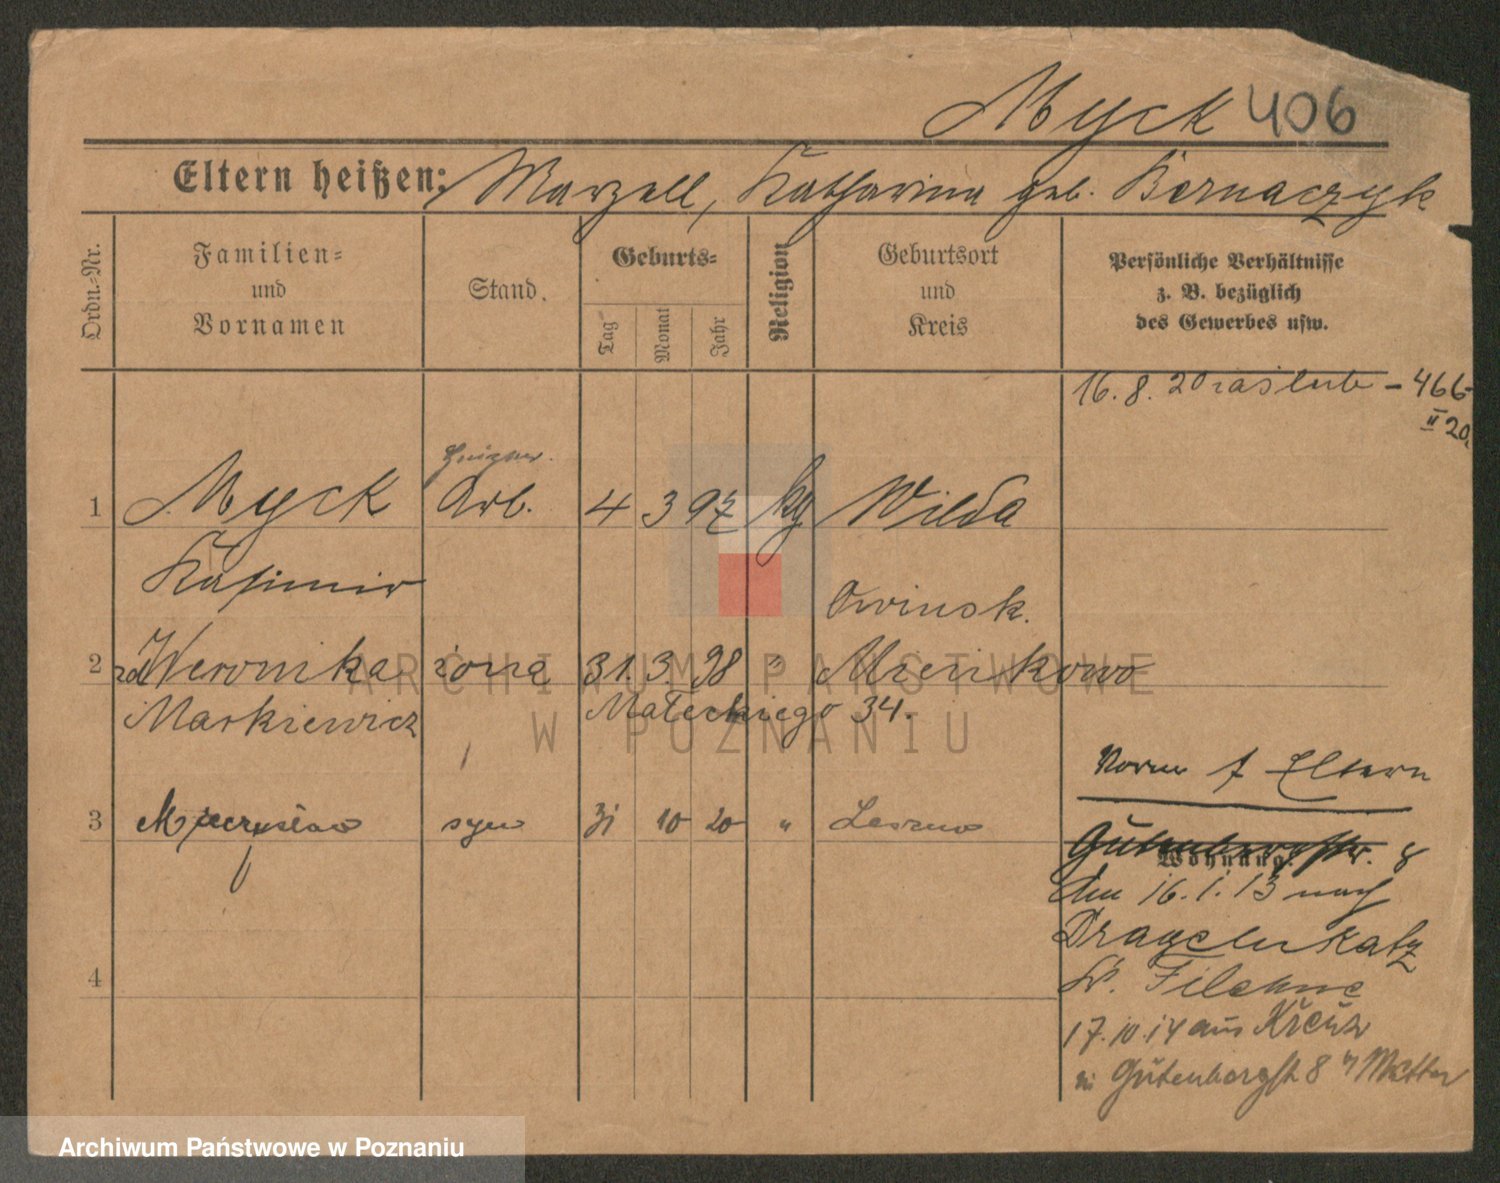 Myck 406
Eltern heißen: Marzell, Katharina geb. Bernaczyk
Ordn.-Nr.
Familien-
und
Vornamen
Stand.
Geburts-
Tag
Monat
Jahr
Religion
Geburtsort
und
Kreis
Persönliche Verhältnisse
z. B. bezüglich
des Gewerbes usw.
16. 8. 20 zaślub – 466
II 20
1 Myck Arb. 4 3 97 kg Wilda
Kasimir
Owinsk.
2 zd Weronika żona 31. 3. 98 " Mrenkowo
Markiewicz Małeckiego 34.
Norm f Eltern
3 Mieczysław syn 31 10 20 " Leszno
Gutenbergstr. 8
Wohnung:
den 16. 1. 13 nach
Dragelukatz
Kr. Filehne
4
17. 10. 14 aus Kreuz
in Gutenbergst 8 Mutter
ARCHIWUM PAŃSTWOWE
W POZNANIU
Archiwum Państwowe w Poznaniu